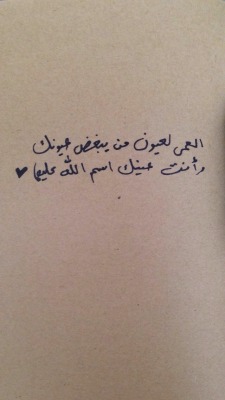 العمى لعيون من يبغض عيونك
وأنت عينيك اسم الله عليها ♥